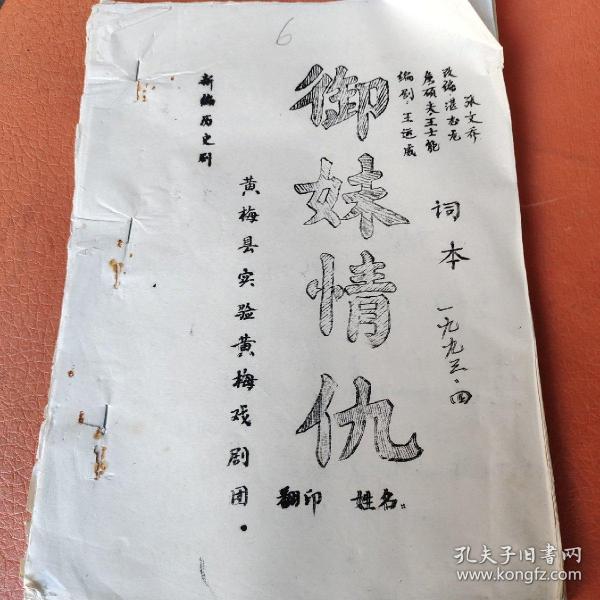 6
新编历史剧
御妹情仇
编剧·王运成
詹硕夫·王士能
改编·湛志龙
张文乔
词本 一九九三·四
黄梅县实验黄梅戏剧团·
翻印 姓名:
孔夫子旧书网
www.kongfz.com